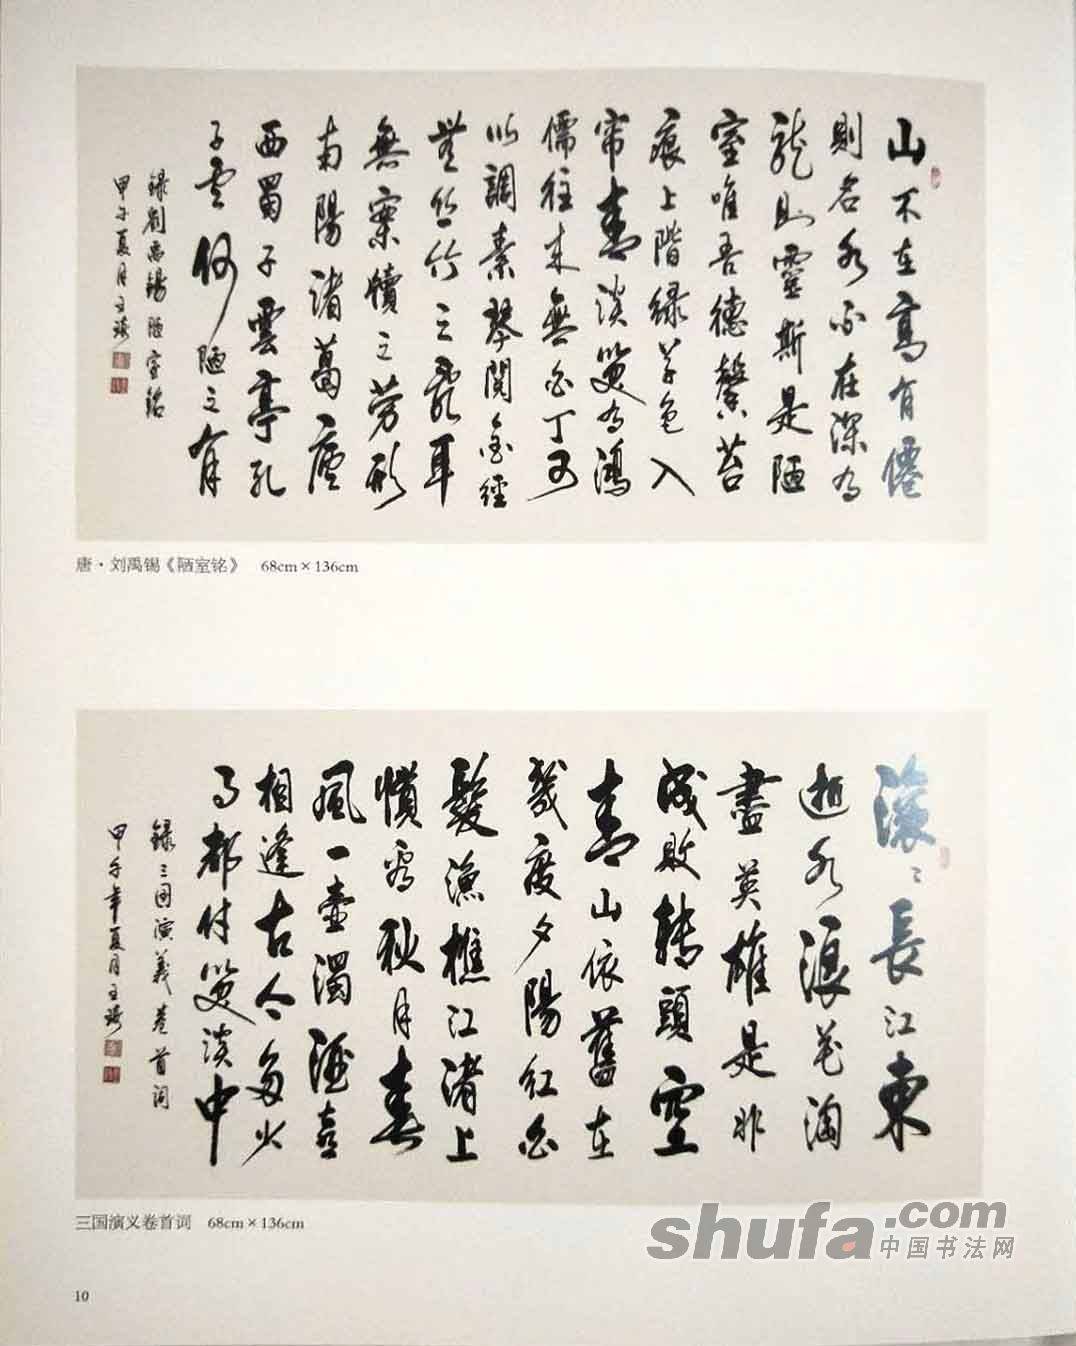 山不在高有僊
則名水不在深有
龍則靈斯是陋
室唯吾德馨苔
痕上階綠草色入
帘青談笑有鴻
儒往來無白丁可
以調素琴閱金經
無絲竹之亂耳
無案牘之勞形
南陽諸葛廬
西蜀子雲亭孔
子云何陋之有
錄劉禹錫陋室銘
甲午夏月王
唐·刘禹锡《陋室铭》 68cm×136cm
滾〻長江東
逝水浪花淘
盡英雄是非
成敗轉頭空
青山依舊在
幾度夕陽紅白
髮漁樵江渚上
慣看秋月春
風一壺濁酒喜
相逢古今多少
事都付笑談中
錄三國演義卷首词
甲午年夏月王
三国演义卷首词 68cm×136cm
shufa.com
中国书法网
10